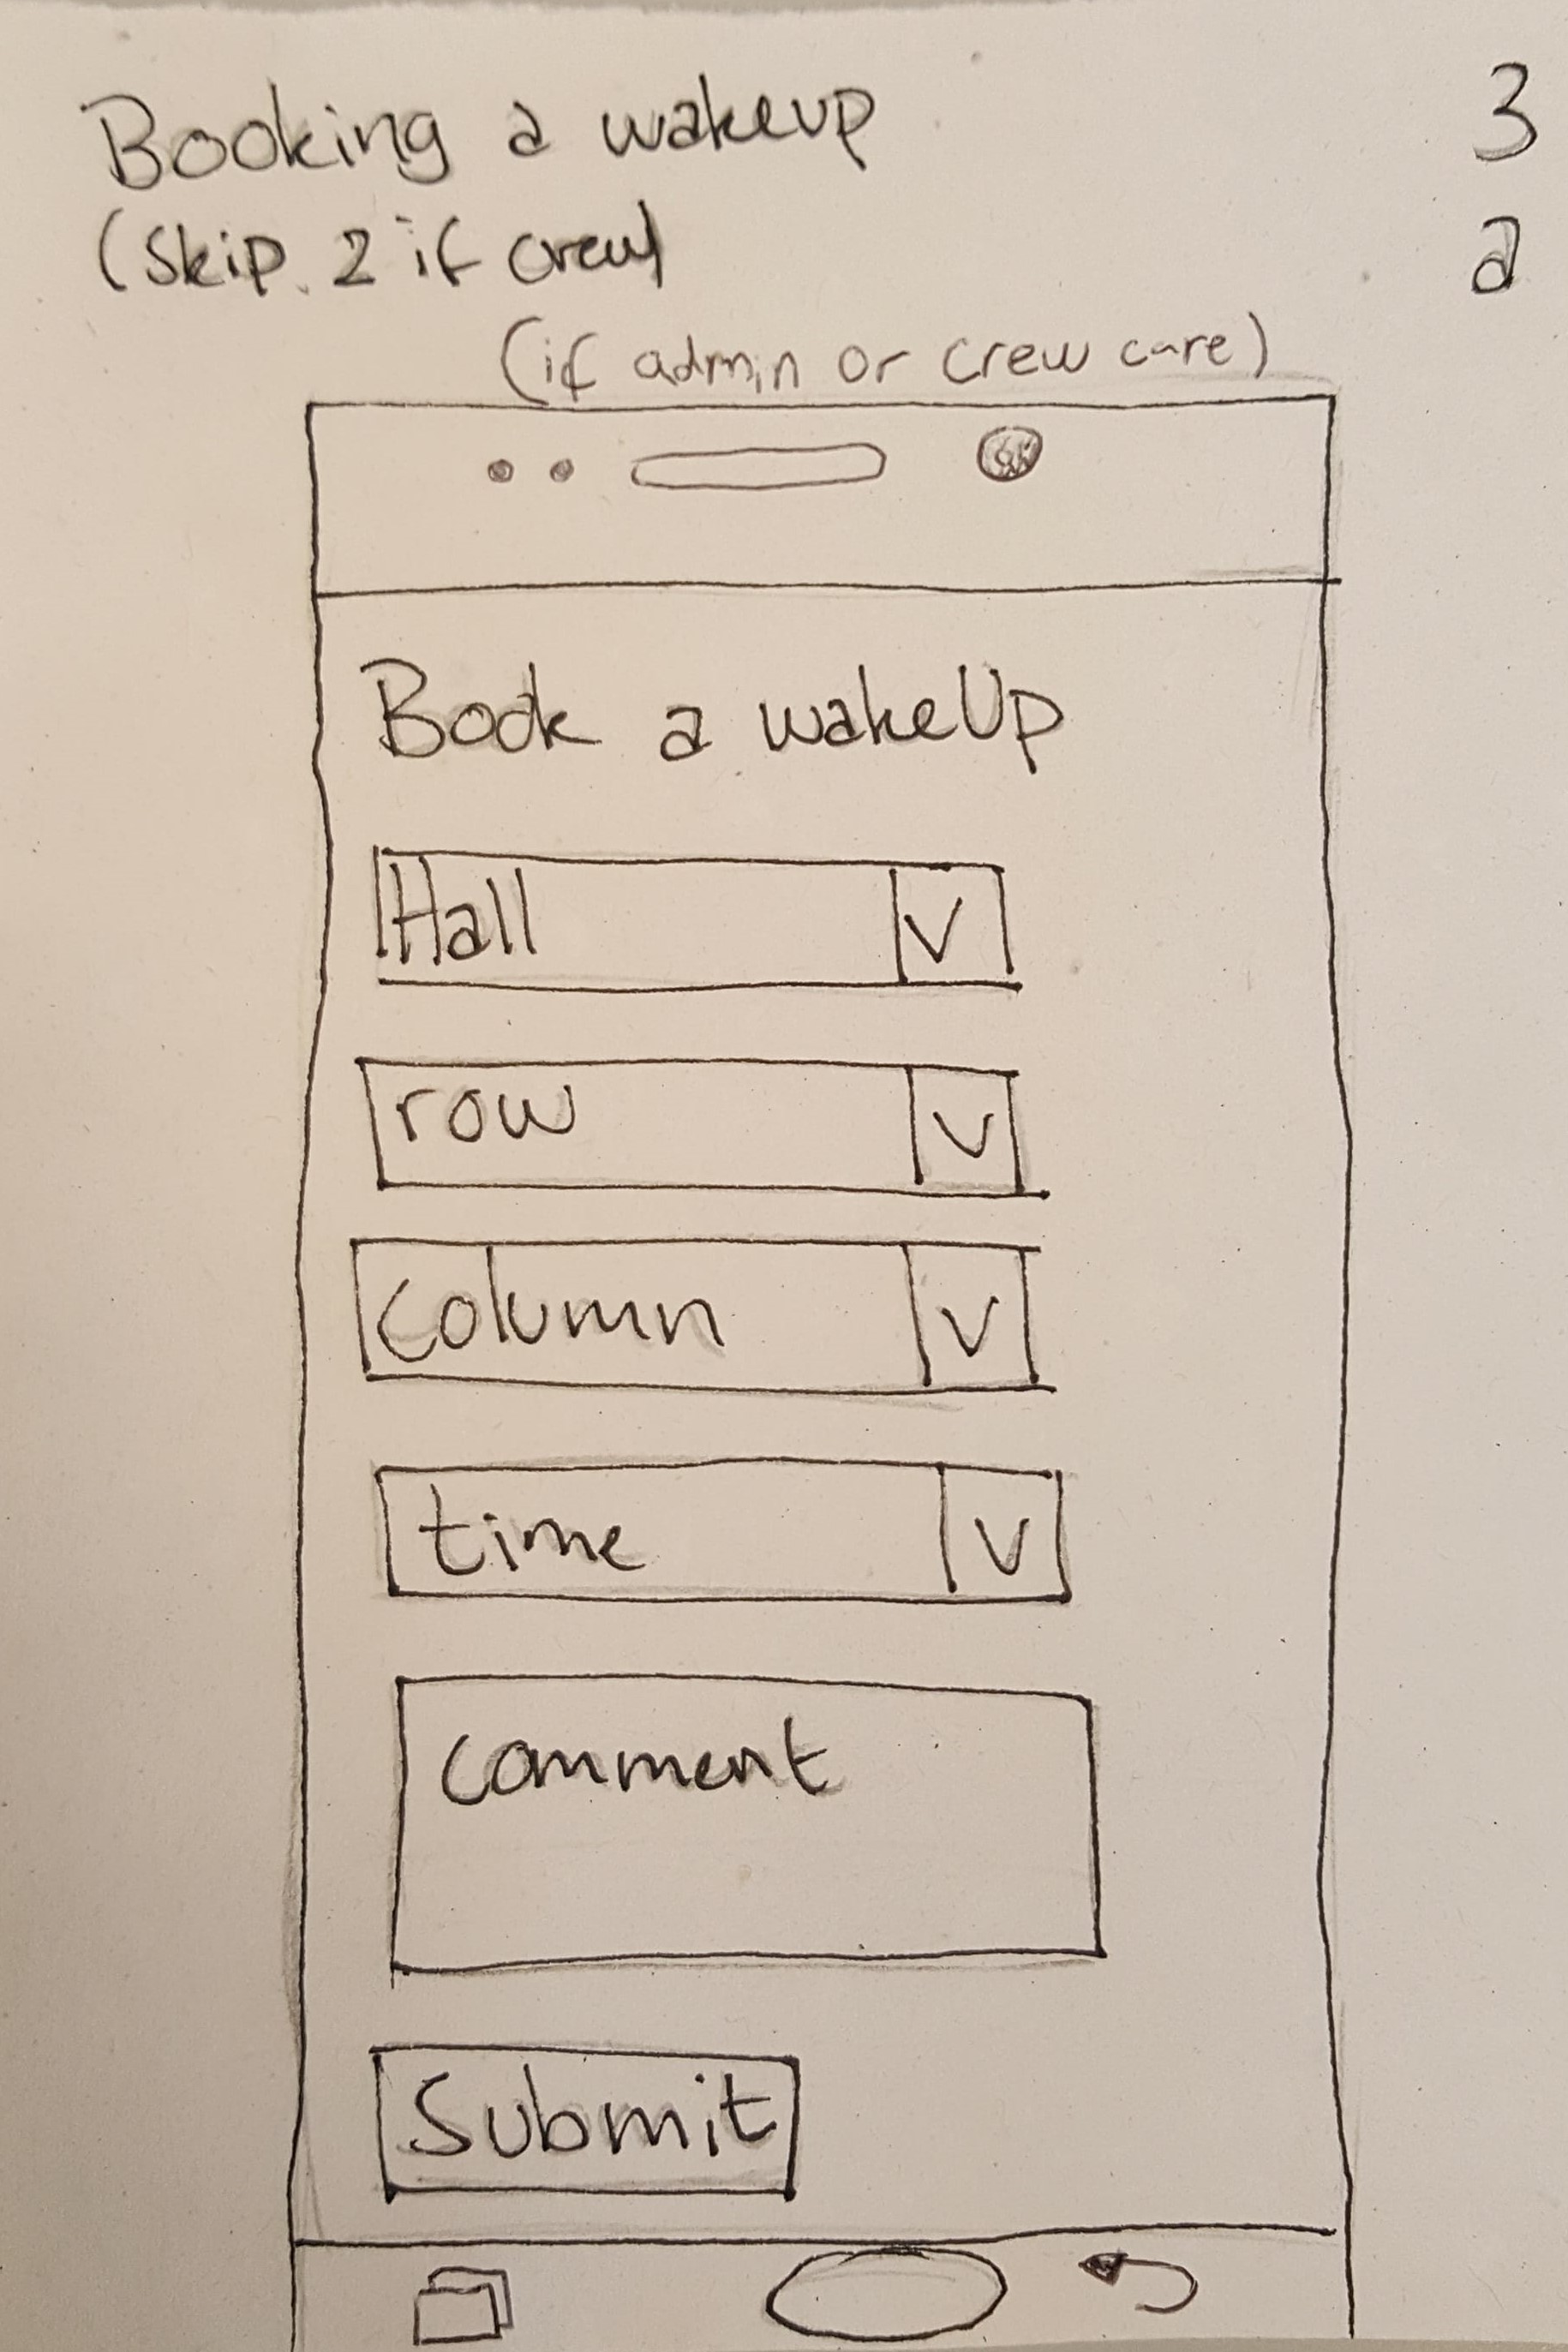 Booking a wakeup 3
(Skip. 2 if crew) a
(if admin or crew care)
Book a wakeUp
Hall V
row V
column V
time V
comment
Submit